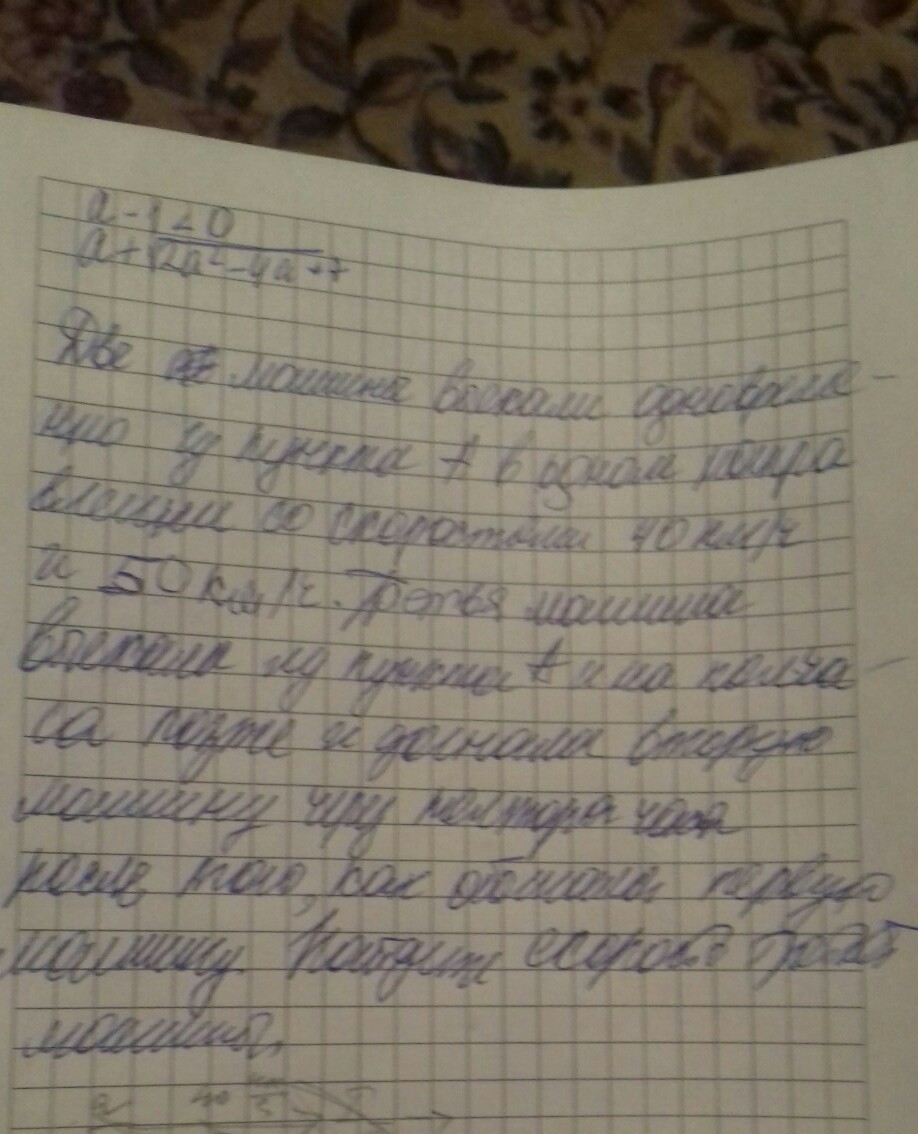 a - 1 < 0
a + √2a² - 4a + 7
Две машины выехали одновреме-
нно из пункта А в одном напра
влении со скоростями 40 км/ч
и 50 км/ч. Третья машина
выехала из пункта А на полча
са позже и догнала вторую
машину чрз полтора часа
после того, как обогнала первую
машину. Найдите скорость третьей
машины.
40 км/ч